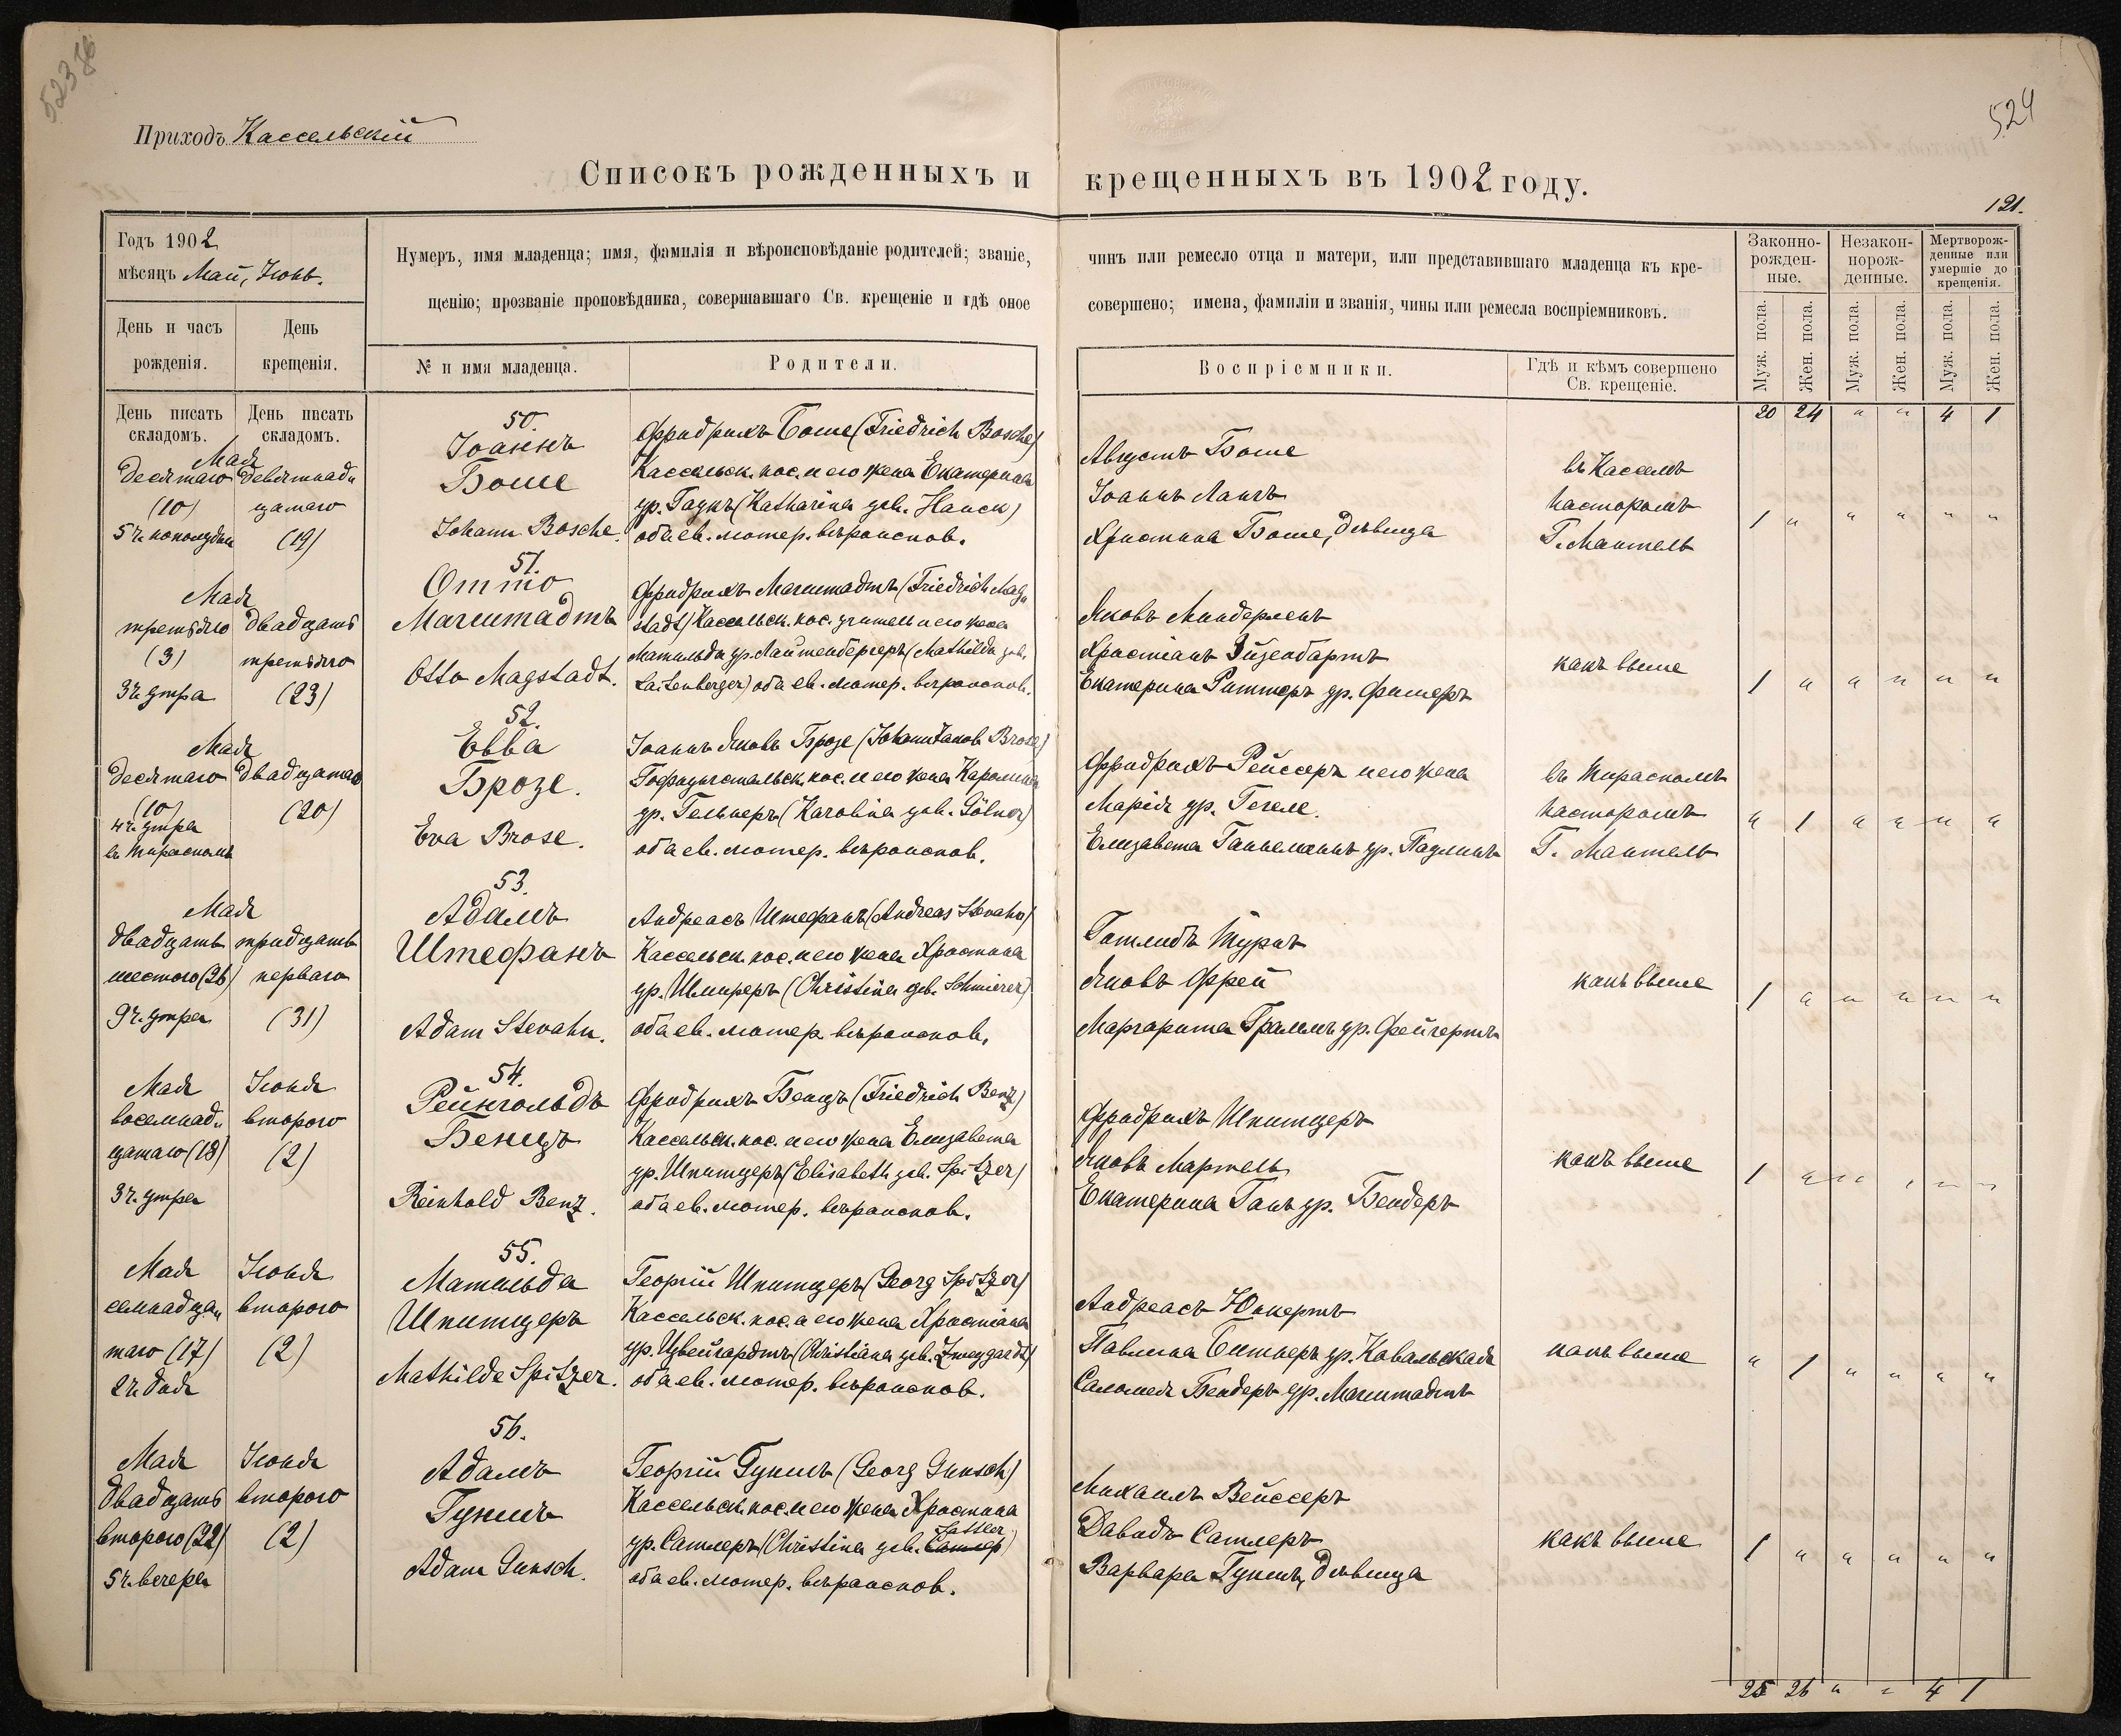 523 об
524
Приходъ Кассельскій
Списокъ рожденныхъ и крещенныхъ въ 1902 году.
121.
Годъ 1902
мѣсяцъ Май, Іюнь.
Нумеръ, имя младенца; имя, фамилія и вѣроисповѣданіе родителей; званіе,
чинъ или ремесло отца и матери, или представившаго младенца къ кре-
щенію; прозваніе проповѣдника, совершавшаго Св. крещеніе и гдѣ оное
совершено; имена, фамиліи и званія, чины или ремесла воспріемниковъ.
Законно-
рожден-
ные.
Незакон-
норож-
денные.
Мертворож-
денные или
умершіе до
крещенія.
День и часъ
рожденія.
День
крещенія.
№ и имя младенца.
Родители.
Воспріемники.
Гдѣ и кѣмъ совершено
Св. крещеніе.
Муж. пола.
Жен. пола.
Муж. пола.
Жен. пола.
Муж. пола.
Жен. пола.
День писать
складомъ.
День писать
складомъ.
20 24 " " 4 1
Мая
десятаго
(10)
5 ч. пополудни
девятнад-
цатаго
(19)
50.
Іоаннъ
Боше
Johann Bosche.
Фридрихъ Боше (Friedrich Bosche)
Кассельск. пос. и его жена Екатерина
ур. Гаукъ (Katharina geb. Hauck)
оба ев. лютер. вѣроиспов.
Августъ Боше
Іоаннъ Лангъ
Христина Боше, дѣвица
въ Касселѣ
пасторомъ
Г. Мантель
1 " " " " "
Мая
третьяго
(3)
3 ч. утра
двадцать
третьяго
(23)
51.
Отто
Магштадтъ
Otto Magstadt.
Фридрихъ Магштадтъ (Friedrich Mag-
stadt) Кассельск. пос. учитель и его жена
Матильда ур. Лаутенбергеръ (Mathilda geb.
Lautenberger) оба ев. лютер. вѣроиспов.
Яковъ Миндерленъ
Христіанъ Эйзенбартъ
Екатерина Риттеръ ур. Фишеръ
какъ выше
1 " " " " "
Мая
десятаго
(10)
4 ч. утра
въ Тирасполѣ
двадцатаго
(20)
52.
Евва
Брозе.
Eva Brose.
Іоаннъ Яковъ Брозе (Johann Jakob Brose)
Гофнунгстальск. пос. и его жена Каролина
ур. Гельнеръ (Karolina geb. Gölner)
оба ев. лютер. вѣроиспов.
Фридрихъ Рейссеръ и его жена
Марія ур. Гегеле.
Елизавета Ганнеманнъ ур. Паулинъ
въ Тирасполѣ
пасторомъ
Г. Мантель
" 1 " " " "
Мая
двадцать
шестого (26)
9 ч. утра
тридцать
перваго
(31)
53.
Адамъ
Штефанъ
Adam Stevahn.
Андреасъ Штефанъ (Andreas Stevahn)
Кассельск. пос. и его жена Христина
ур. Шмиреръ (Christina geb. Schmierer)
оба ев. лютер. вѣроиспов.
Готлибъ Туркъ
Яковъ Фрей
Маргарита Граммъ ур. Фейгертъ
какъ выше
1 " " " " "
Мая
восемнад-
цатаго (18)
3 ч. утра
Іюня
второго
(2)
54.
Рейнгольдъ
Бенцъ
Reinhold Benz.
Фридрихъ Бенцъ (Friedrich Benz)
Кассельск. пос. и его жена Елизавета
ур. Шпитцеръ (Elisabeth geb. Spitzer)
оба ев. лютер. вѣроиспов.
Фридрихъ Шпитцеръ
Яковъ Мартель
Екатерина Ганъ ур. Бендеръ
какъ выше
1 " " " " "
Мая
семнадца-
таго (17)
2 ч. дня
Іюня
второго
(2)
55.
Матильда
Шпитцеръ
Mathilde Spitzer.
Георгій Шпитцеръ (Georg Spitzer)
Кассельск. пос. и его жена Христіана
ур. Цвейгардтъ (Christiana geb. Zweygardt)
оба ев. лютер. вѣроиспов.
Андреасъ Юнкертъ
Павлина Битнеръ ур. Ковальская
Саломея Бендеръ ур. Магштадтъ
какъ выше
" 1 " " " "
Мая
двадцать
второго (22)
5 ч. вечера
Іюня
второго
(2)
56.
Адамъ
Гуншъ
Adam Gunsch.
Георгій Гуншъ (Georg Gunsch)
Кассельск. пос. и его жена Христина
Sattler
ур. Сатлеръ (Christina geb. Сатлер)
оба ев. лютер. вѣроиспов.
Михаилъ Вейссеръ
Давидъ Сатлеръ
Варвара Гуншъ, дѣвица
какъ выше
1 " " " " "
25 26 " " 4 1